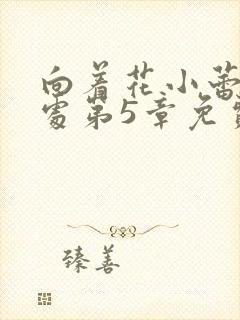 向着花小蕾
处第5章免
臻善